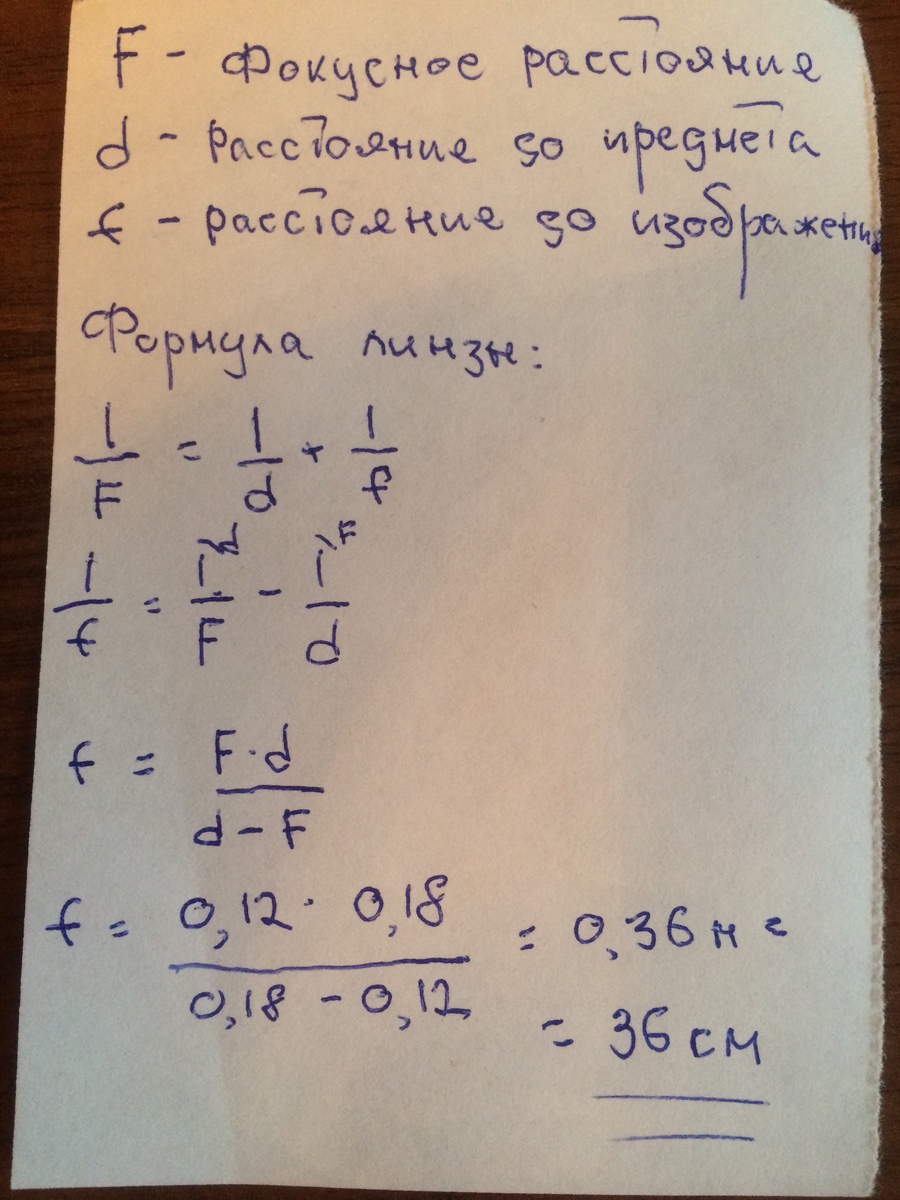 F - Фокусное расстояние
d - Расстояние до предмета
f - расстояние до изображения
Формула линзы:
1/F = 1/d + 1/f
1/f = 1\d/F - 1\F/d
f = F·d/d-F
f = 0,12 · 0,18/0,18 - 0,12 = 0,36 м =
= 36 см